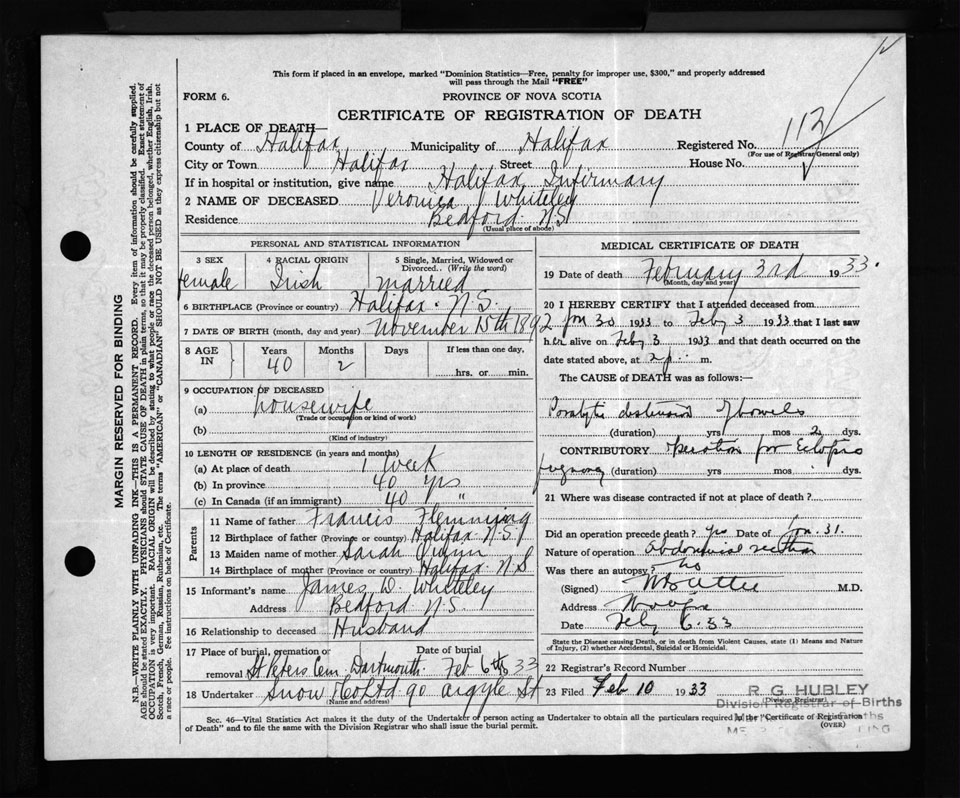 This form if placed in an envelope, marked "Dominion Statistics—Free, penalty for improper use, $300," and properly addressed
will pass through the Mail "FREE"
FORM 6.
PROVINCE OF NOVA SCOTIA
CERTIFICATE OF REGISTRATION OF DEATH
1 PLACE OF DEATH—
County of Halifax Municipality of Halifax Registered No. 113
(For use of Registrar General only)
City or Town Halifax Street House No.
If in hospital or institution, give name Halifax Infirmary
2 NAME OF DECEASED Veronica J Whiteley
Residence Bedford N.S.
(Usual place of abode)
PERSONAL AND STATISTICAL INFORMATION
3 SEX 4 RACIAL ORIGIN 5 Single, Married, Widowed or Divorced.. (Write the word)
female Irish married
6 BIRTHPLACE (Province or country) Halifax. N.S.
7 DATE OF BIRTH (month, day and year) November 15th 1892
8 AGE IN Years Months Days If less than one day,
40 2 hrs. or min.
9 OCCUPATION OF DECEASED
(a) housewife
(Trade or occupation or kind of work)
(b)
(Kind of industry)
10 LENGTH OF RESIDENCE (in years and months)
(a) At place of death 1 week
(b) In province 40 yrs
(c) In Canada (if an immigrant) 40 "
Parents
11 Name of father Francis Flemming
12 Birthplace of father (Province or country) Halifax N.S.
13 Maiden name of mother Sarah Quinn
14 Birthplace of mother (Province or country) Halifax N S
15 Informant's name James D. Whiteley
Address Bedford N.S.
16 Relationship to deceased Husband
17 Place of burial, cremation or removal Date of burial
St Peters Cem. Dartmouth. Feb 6th 33
18 Undertaker Snow & Co Ltd 90 Argyle St
(Name and address)
MEDICAL CERTIFICATE OF DEATH
19 Date of death February 3rd 1933.
(Month, day and year)
20 I HEREBY CERTIFY that I attended deceased from
Jan 30 1933 to Feby 3 1933 that I last saw
her alive on Feby 3 1933 and that death occurred on the
date stated above, at 2 p. m.
The CAUSE of DEATH was as follows:—
Paralytic distension of bowels
(duration) yrs mos 2 dys.
CONTRIBUTORY Operation for Ectopic
pregnancy (duration) yrs mos dys.
21 Where was disease contracted if not at place of death?
Did an operation precede death? yes Date of Jan. 31.
Nature of operation Abdominal section
Was there an autopsy? no
(Signed) M.D.
Address
Date Feby 6. 33
State the Disease causing Death, or in death from Violent Causes, state (1) Means and Nature
of Injury, (2) whether Accidental, Suicidal or Homicidal.
22 Registrar's Record Number
23 Filed Feb 10 1933 R. G. HUBLEY
(Division Registrar)
Division Registrar of Births
Sec. 46—Vital Statistics Act makes it the duty of the Undertaker or person acting as Undertaker to obtain all the particulars required in the "Certificate of Registration
of Death" and to file the same with the Division Registrar who shall issue the burial permit.
(OVER)
MARGIN RESERVED FOR BINDING
N.B.—WRITE PLAINLY WITH UNFADING INK—THIS IS A PERMANENT RECORD. Every item of information should be carefully supplied.
AGE should be stated EXACTLY. PHYSICIANS should STATE CAUSE OF DEATH in plain terms, so that it may be properly classified. Exact statement of
OCCUPATION is very important. RACIAL ORIGIN will be described by stating to what people or race the deceased person belonged, whether English, Irish,
Scotch, French, German, Russian, Ruthenian, etc. The terms "AMERICAN" or "CANADIAN" SHOULD NOT BE USED as they express citizenship but not
a race or people. See instructions on back of Certificate.